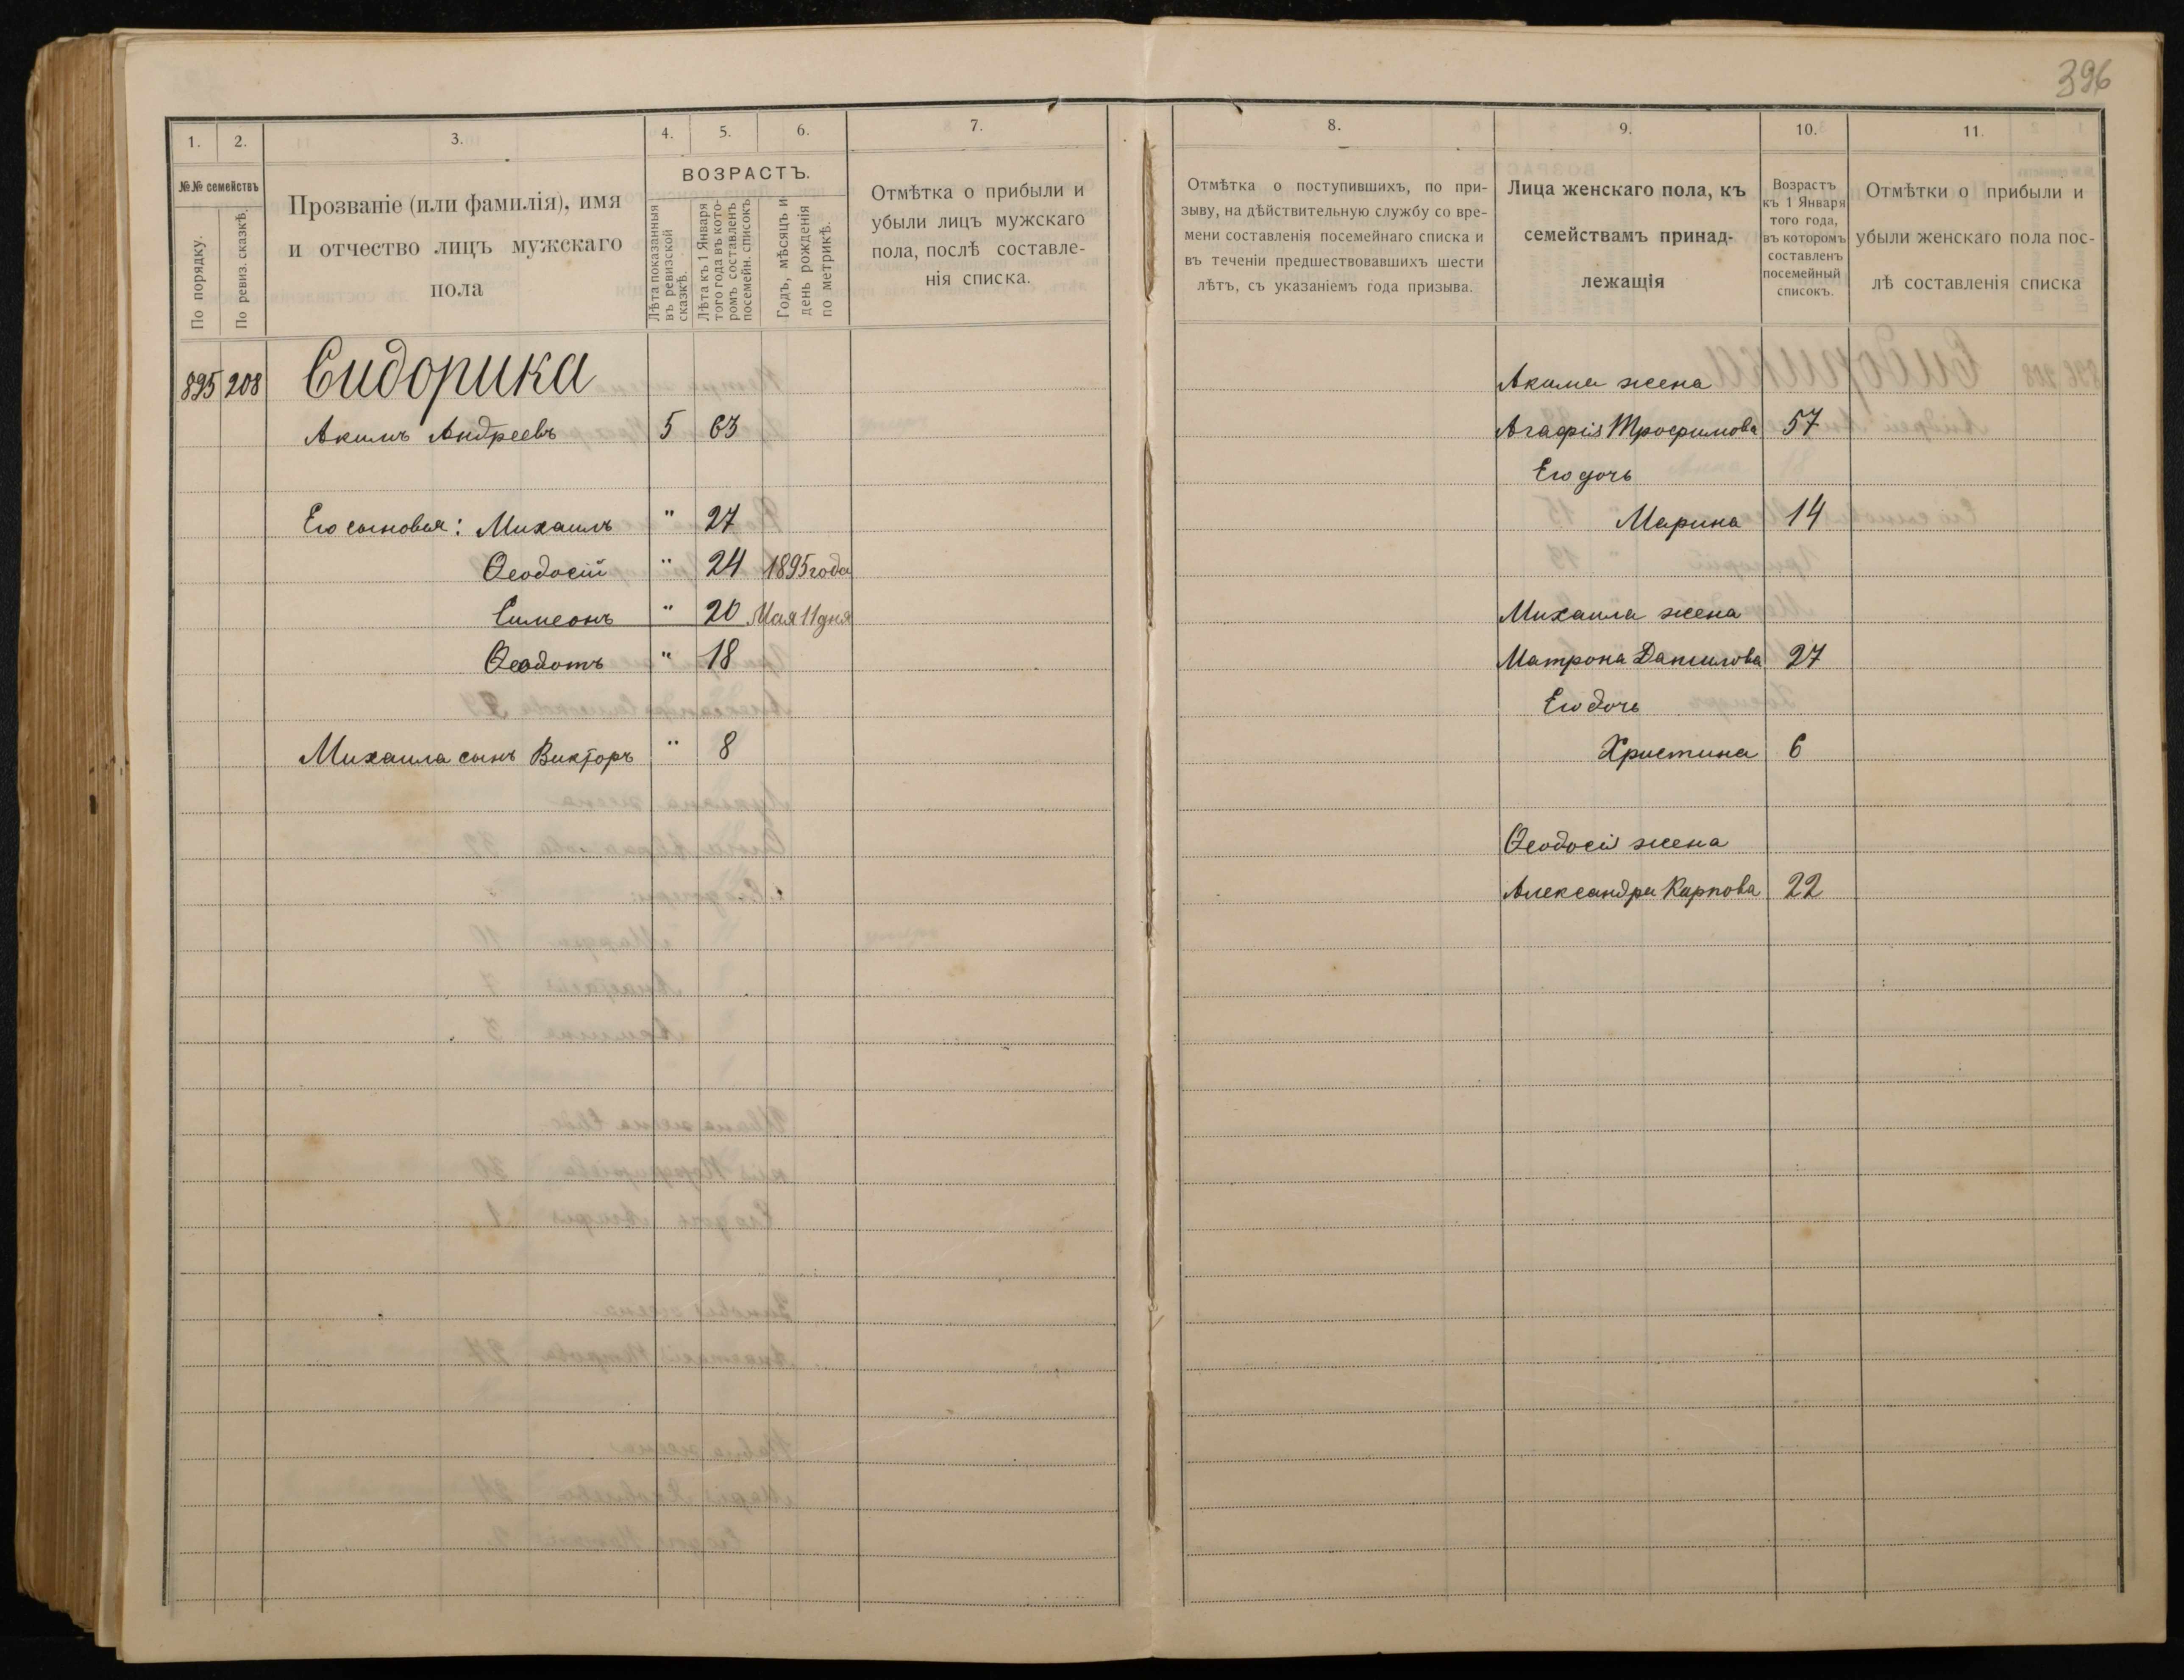 396
1. 2. 3. 4. 5. 6. 7.
№№ семействъ
По порядку.
По ревиз. сказкѣ.
Прозваніе (или фамилія), имя
и отчество лицъ мужскаго
пола
ВОЗРАСТЪ.
Лѣта показанныя
въ ревизской
сказкѣ.
Лѣта къ 1 Января
того года въ кото-
ромъ составленъ
посемейн. списокъ
Годъ, мѣсяцъ и
день рожденія
по метрикѣ.
Отмѣтка о прибыли и
убыли лицъ мужскаго
пола, послѣ составле-
нія списка.
895 208 Сидорика
Акимъ Андреевъ 5 63
Его сыновья: Михаилъ " 27
Ѳеодосій " 24 1895 года
Симеонъ " 20 Мая 11 дня
Ѳеодотъ " 18
Михаила сынъ Викторъ " 8
8. 9. 10. 11.
Отмѣтка о поступившихъ, по при-
зыву, на дѣйствительную службу со вре-
мени составленія посемейнаго списка и
въ теченіи предшествовавшихъ шести
лѣтъ, съ указаніемъ года призыва.
Лица женскаго пола, къ
семействамъ принад-
лежащія
Возрастъ
къ 1 Января
того года,
въ которомъ
составленъ
посемейный
списокъ.
Отмѣтки о прибыли и
убыли женскаго пола пос-
лѣ составленія списка
Акима жена
Агафія Трофимова 57
Его дочь
Марина 14
Михаила жена
Матрона Данилова 27
Его дочь
Христина 6
Ѳеодосія жена
Александра Карпова 22